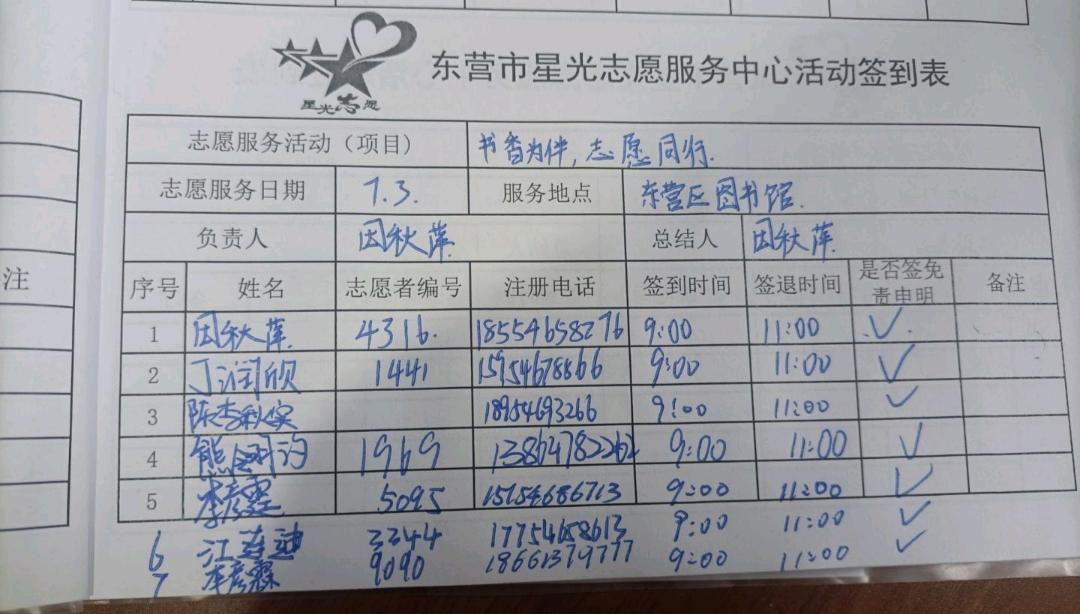 星光志愿
东营市星光志愿服务中心活动签到表
志愿服务活动（项目） 书香为伴，志愿同行.
志愿服务日期 7.3. 服务地点 东营区图书馆.
负责人 因秋萍 总结人 因秋萍
注
序号 姓名 志愿者编号 注册电话 签到时间 签退时间 是否签免责申明 备注
1 因秋萍 4316. 18554658276 9:00 11:00 ✓
2 丁润欣 1441 15954678866 9:00 11:00 ✓
3 陈李 18954693266 9:00 11:00 ✓
4 熊 1969 13864782262 9:00 11:00 ✓
5 李彦霆 5095 15154686713 9:00 11:00 ✓
6 江 3344 17754658613 9:00 11:00 ✓
7 李彦霖 9090 18661379777 9:00 11:00 ✓